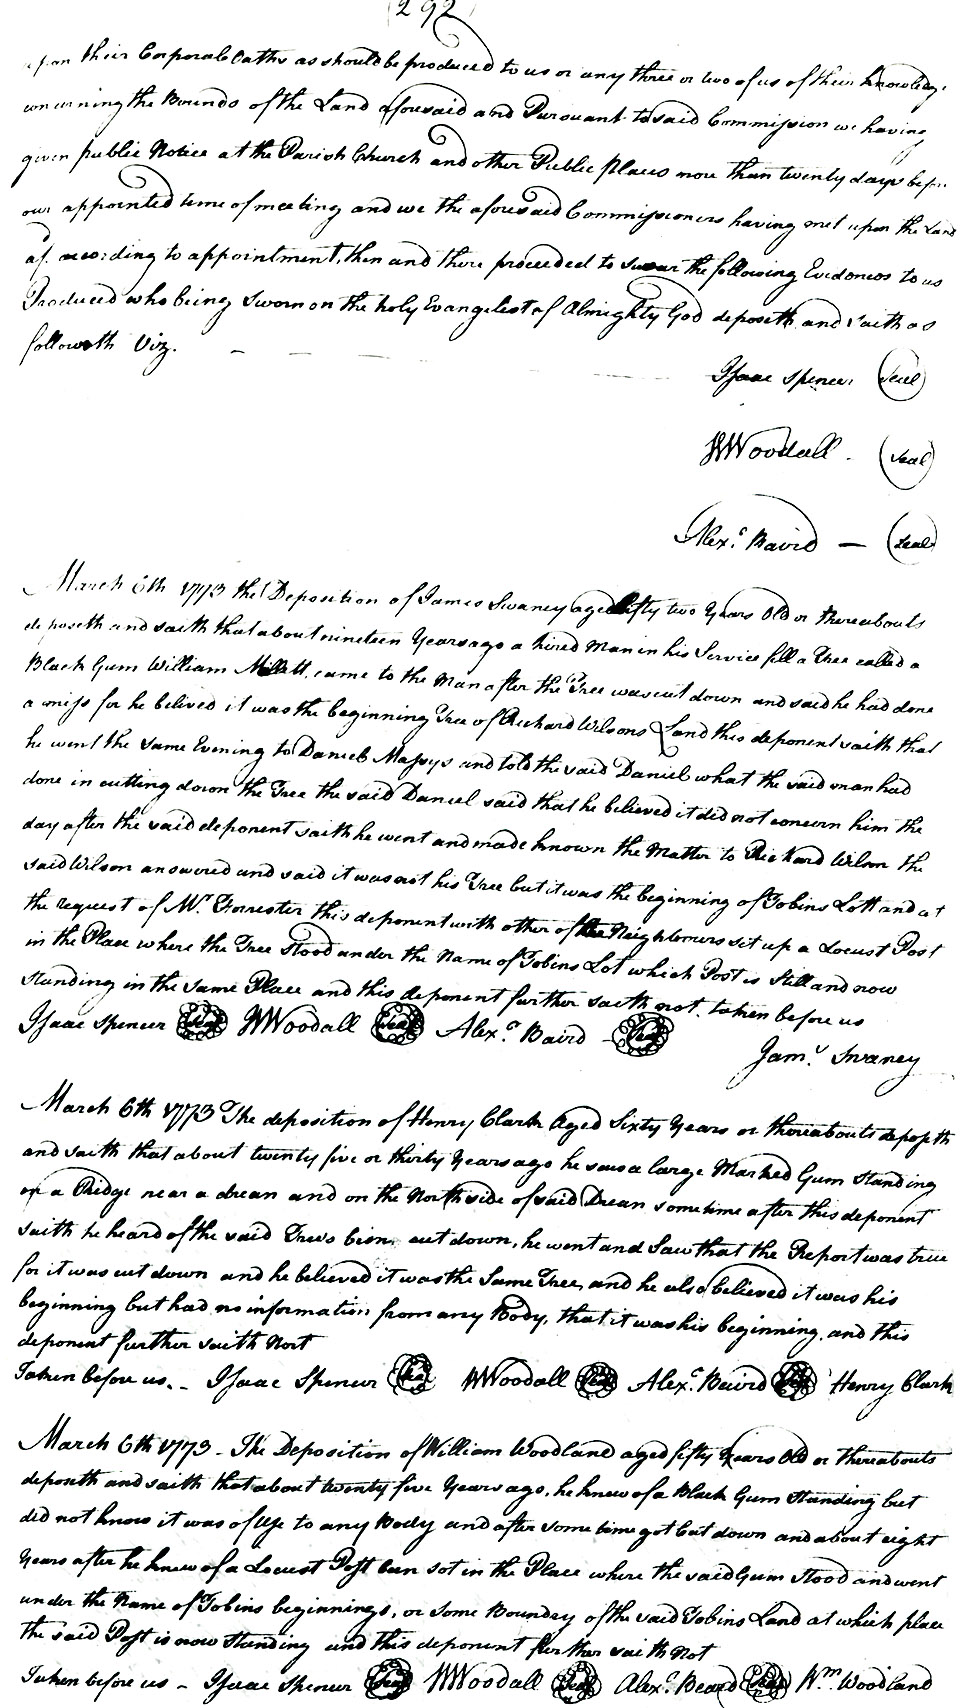 (292)
upon their Corporal Oaths as should be produced to us or any three or two of us of their knowledge
concerning the Bounds of the Land aforesaid and Pursuant to said Commission we having
given public Notice at the Parish Church and other Public places more than twenty days before
our appointed time of meeting and we the aforesaid Commissioners having met upon the Land
afd. according to appointment, then and there proceeded to swear the following Evidences to us
Produced who being sworn on the holy Evangelest of Almighty God deposeth and saith as
followeth Viz.
Isaac Spencer (Seal)
WWoodall. (Seal)
Alexr. Baird — (Seal)
March 6th 1773 the Deposition of James Swaney aged fifty two Years Old or thereabouts
deposeth and saith that about nineteen Years ago a hired Man in his Service fell a Tree called a
Black Gum William came to the Man after the Tree was cut down and said he had done
a miss for he belived it was the beginning Tree of Richard Wilsons Land this deponent saith that
he went the same Evening to Daniel Massys and told the said Daniel what the said man had
done in cutting down the Tree the said Daniel said that he believed it did not concern him the
day after the said deponent saith he went and made known the Matter to Richard Wilson the
said Wilson answered and said it was not his Tree but it was the beginning of Tobins Lott and at
the request of Mr. Forrester this deponent with other of the Neighbours set up a Locust Post
in the Place where the Tree stood under the Name of Tobins Lot which Post is Still and now
standing in the same Place and this deponent further saith not. taken before us
Isaac Spencer (Seal) WWoodall (Seal) Alexr. Baird — (Seal)
Jams. Swaney
March 6th 1773 The deposition of Henry Clark Aged Sixty Years or thereabouts deposeth
and saith that about twenty five or thirty Years ago he saw a large Marked Gum standing
on a Ridge near a drean and on the North side of said Drean sometime after this deponent
saith he heard of the said Trees bien cut down, he went and Saw that the Report was true
for it was cut down and he believed it was the Same Tree, and he also believed it was his
beginning but had no information from any Body, that it was his beginning, and this
deponent further saith Nort
Taken before us. – Isaac Spencer (Seal) WWoodall (Seal) Alexr. Baird (Seal) Henry Clark
March 6th 1773 – The Deposition of William Woodland aged fifty Years Old or thereabouts
deposeth and saith that about twenty five Years ago, he knew of a Black Gum Standing but
did not know it was of Use to any Body and after some time got Cut down and about eight
Years after he knew of a Locust Post been sot in the Place where the said Gum stood and went
under the Name of Tobins beginnings, or some Boundry of the said Tobins Land at which place
the said Post is now standing and this deponent further saith Not
Taken before us – Isaac Spencer (Seal) WWoodall (Seal) Alexr. Beard (Seal) Wm. Woodland